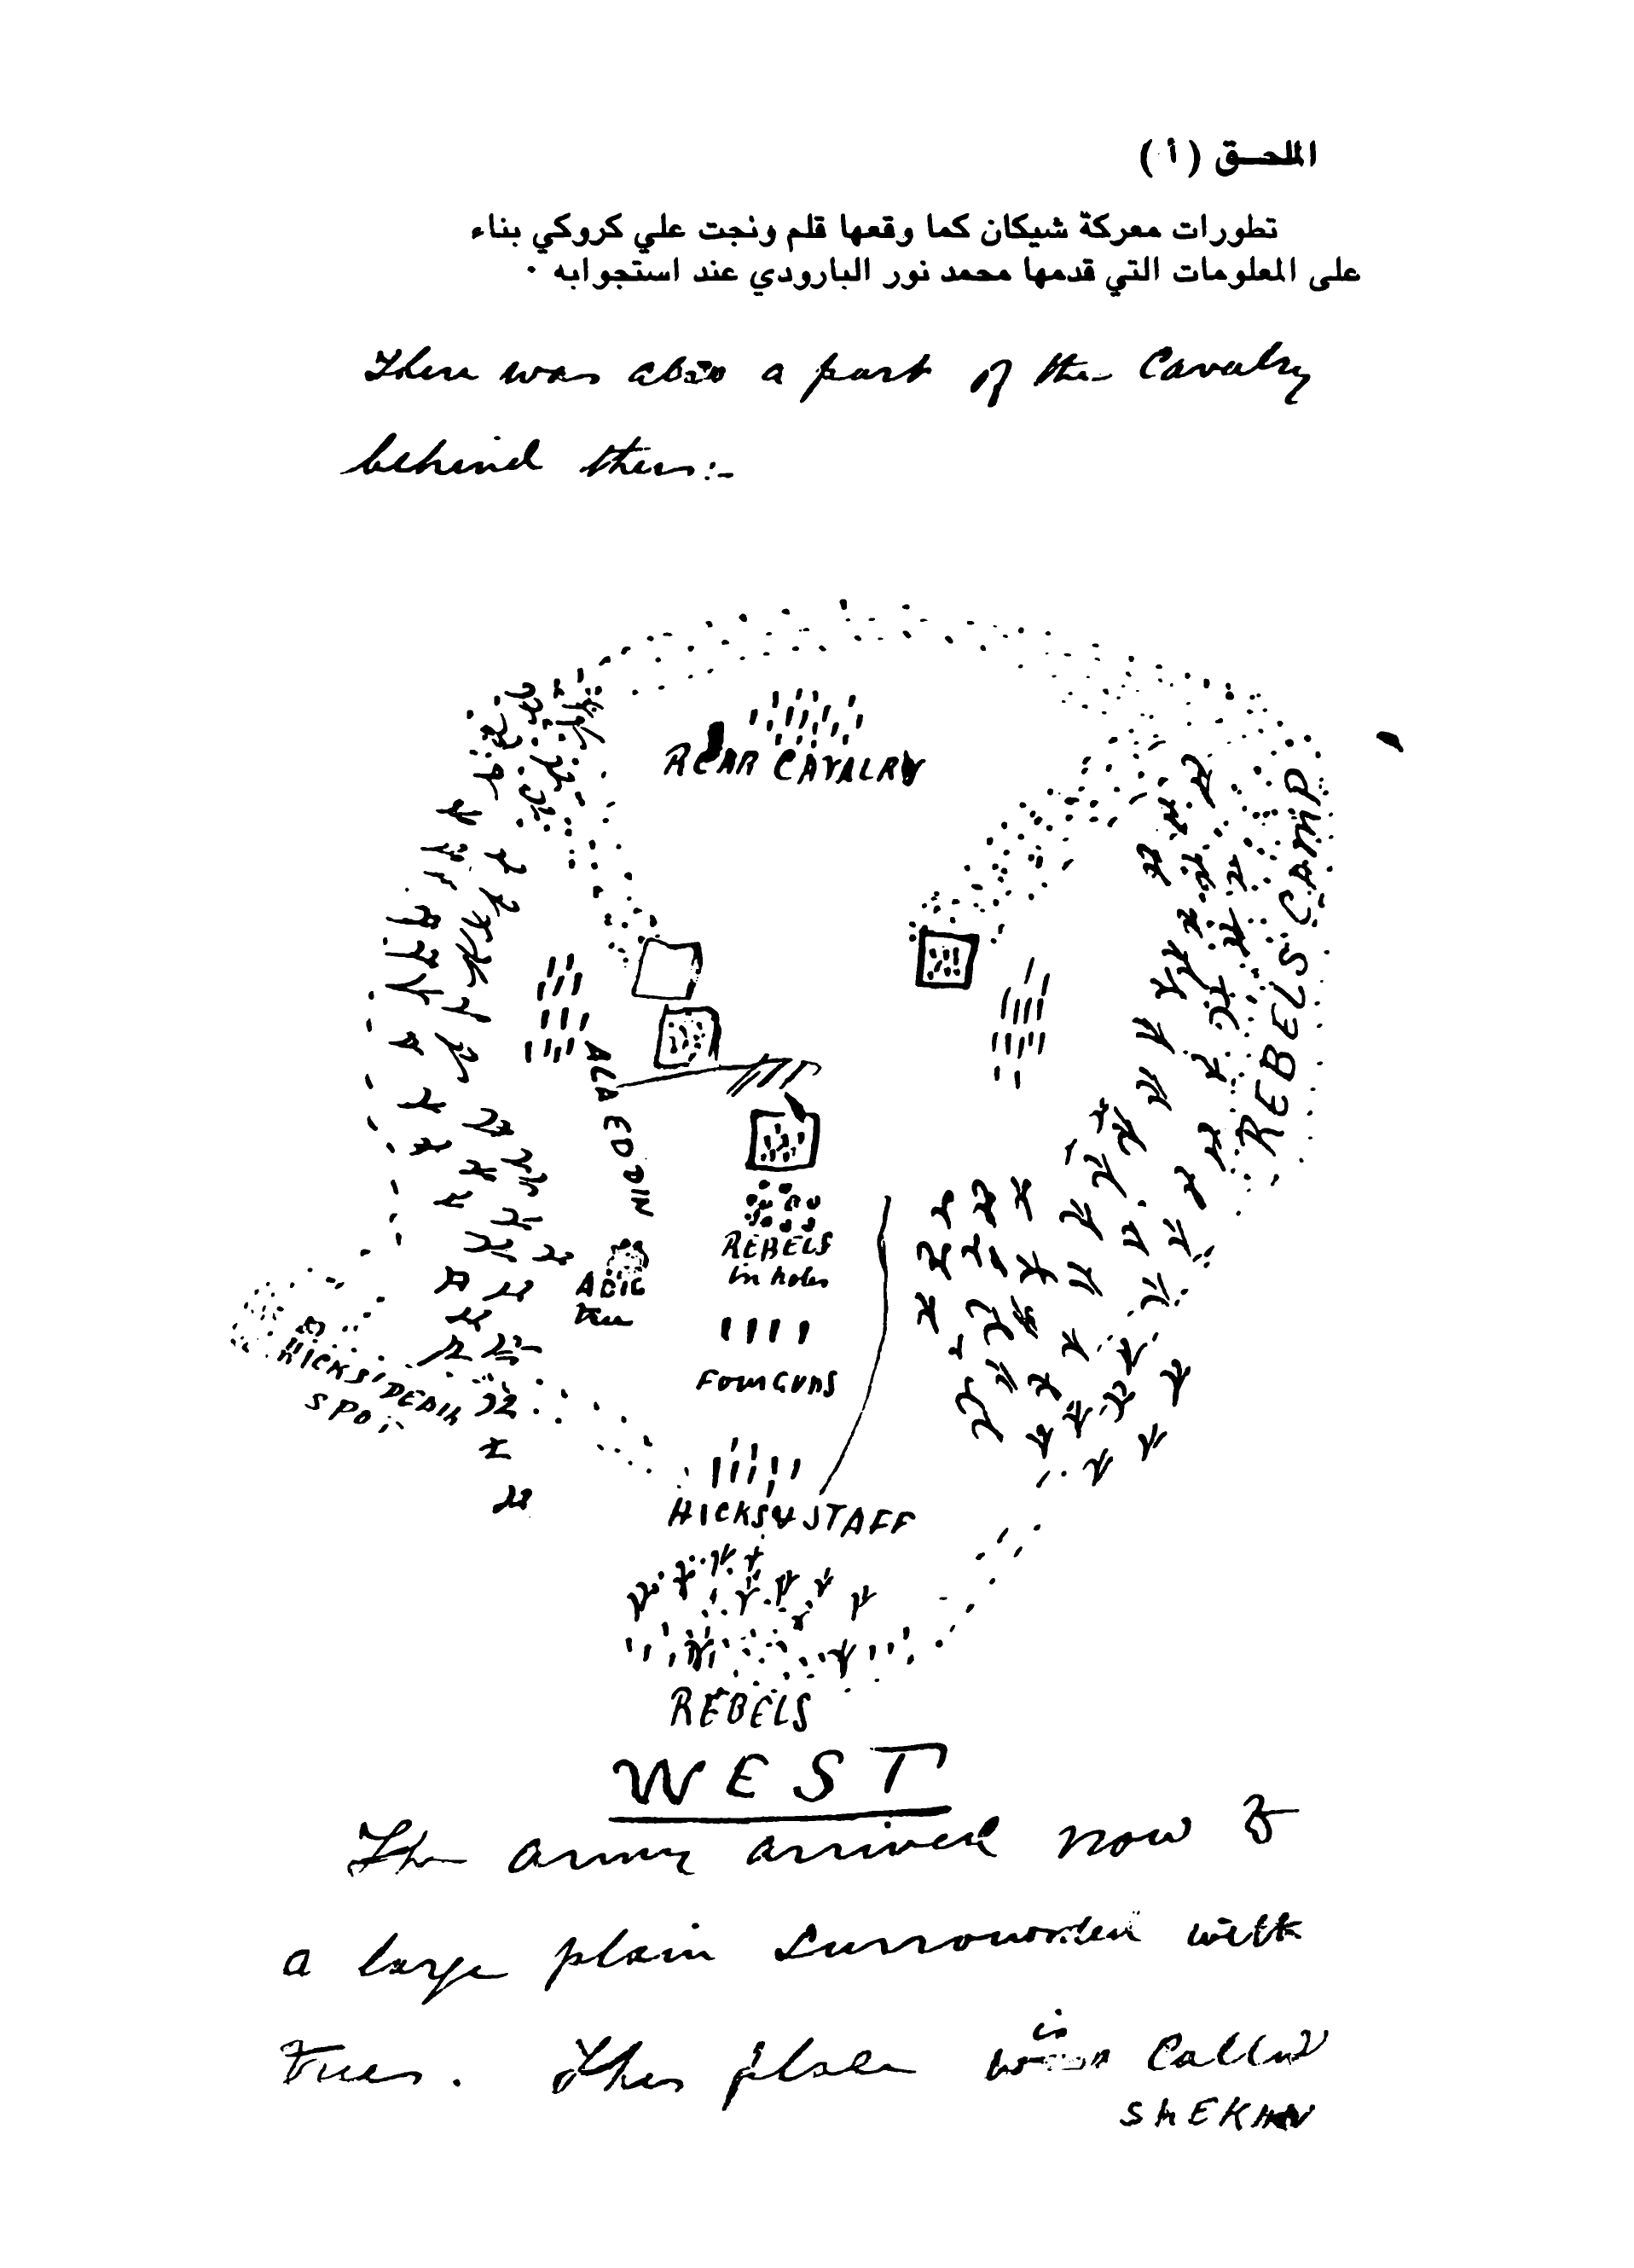 الملحق (أ)
تطورات معركة شيكان كما وقعها قلم ونجت علي كروكي بناء
على المعلومات التي قدمها محمد نور البارودي عند استجوابه ٠
There was also a part of the Cavalry
behind them:-
REAR CAVALRY
REBELS CAMP
ALA EDDIN
REBELS
in holes
ADIG
Tree
FOUR GUNS
HICKS' DEATH
SPOT
HICKS & STAFF
REBELS
WEST
The army arrived now to
a large plain surrounded with
trees. This place is called
SHEKAN